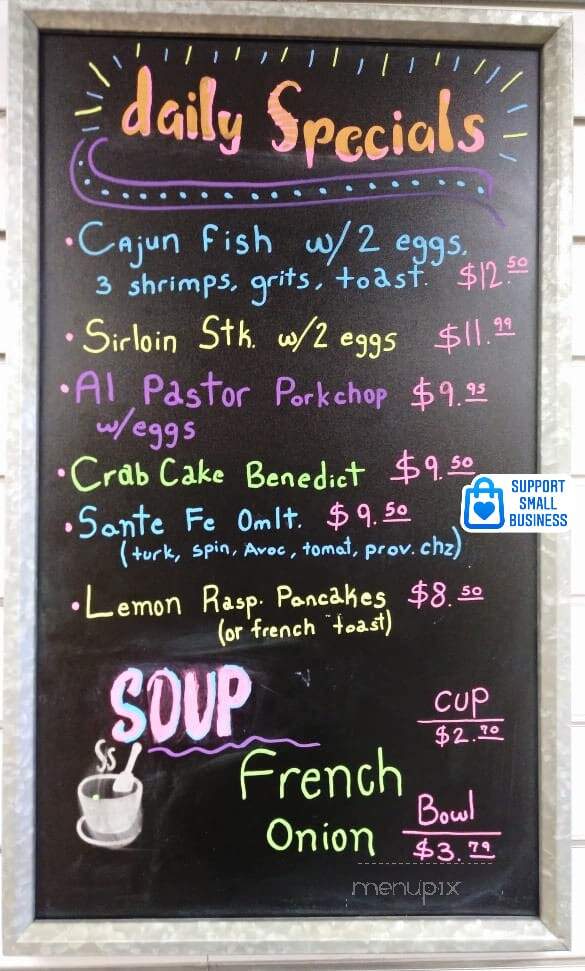 daily Specials
• Cajun Fish w/2 eggs,
3 shrimps, grits, toast. $12.50
• Sirloin Stk. w/2 eggs $11.99
• Al Pastor Porkchop $9.95
w/eggs
• Crab Cake Benedict $9.50
• Sante Fe Omlt. $9.50
(turk, spin, Avoc, tomat, prov. chz)
SUPPORT
SMALL
BUSINESS
• Lemon Rasp. Pancakes $8.50
(or french toast)
SOUP
CUP
$2.70
French
Onion
Bowl
$3.79
menupix